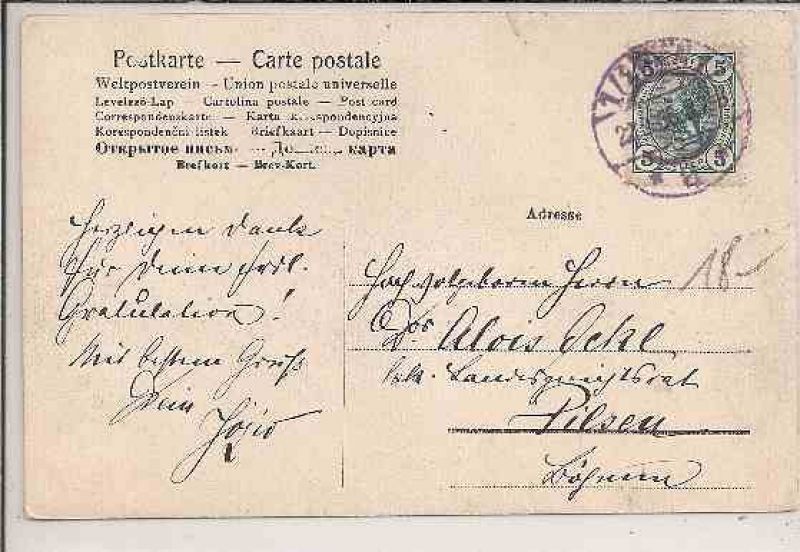 Postkarte — Carte postale
Weltpostverein – Union postale universelle
Levelező-Lap – Cartolina postale – Post card
Correspondenzkarte – Karta korespondencyjna
Korespondenční lístek Briefkaart – Dopisnice
Открытое письмо —
Brefkort — Brev-Kort.
5 5
5 5
Adresse
Herzlichen Dank
für Deine frdl.
Gratulation!
Mit bestem Gruß
Dein
Hochwohlgeborn Herrn
18-
Alois
k.k. Landesgerichtsrat
Pilsen
Böhmen